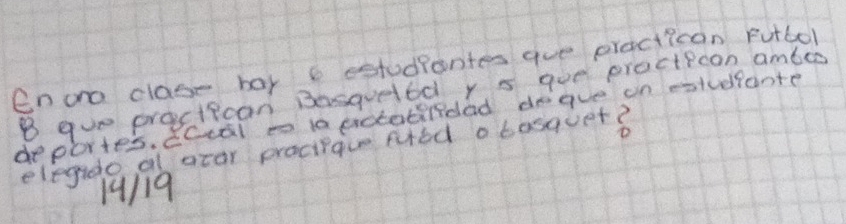 En una clase hay 6 estudiantes que practican Futbol
8 que practican Basquetbol y 5 que practican ambos
deportes. ¿Cual es la probabilidad de que un estudiante
elegido al azar practique futbol o basquet?
14/19